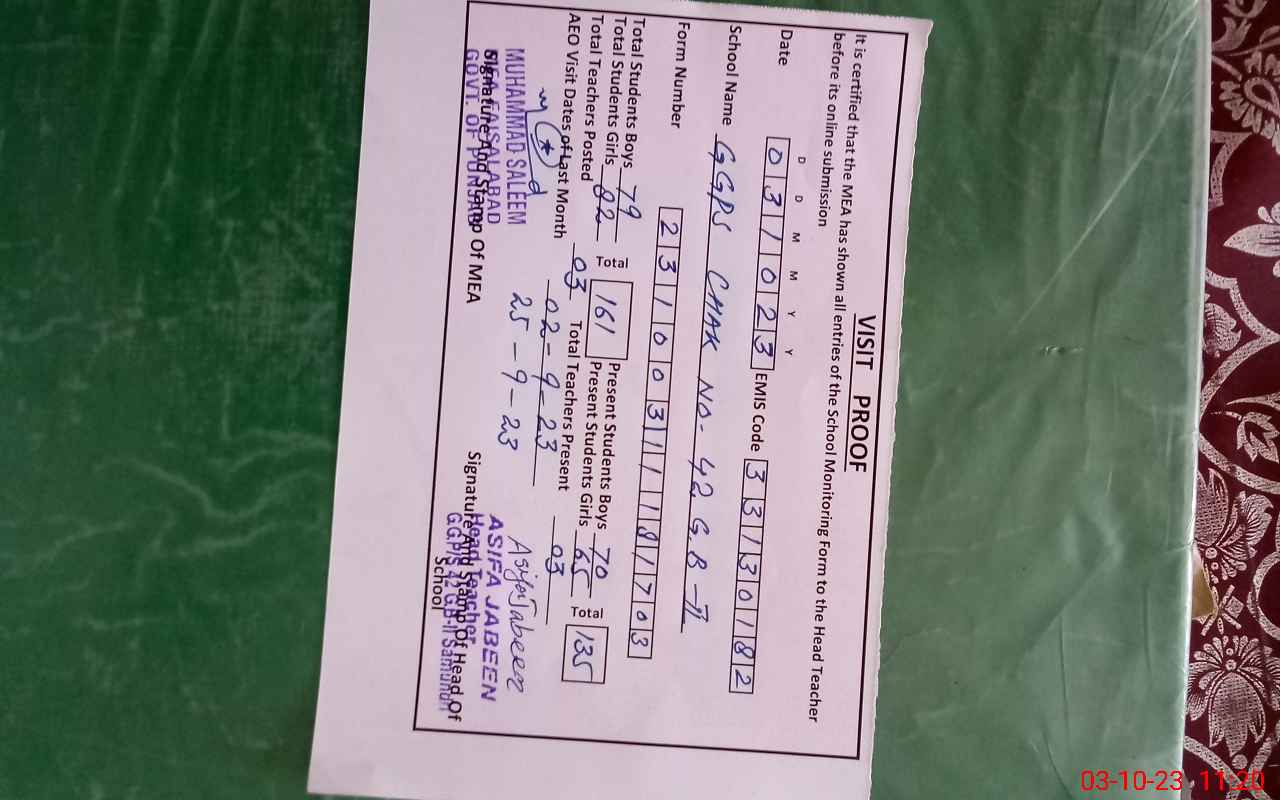 VISIT PROOF
It is certified that the MEA has shown all entries of the School Monitoring Form to the Head Teacher
before its online submission
D D M M Y Y
Date 0 3 1 0 2 3 EMIS Code 3 3 1 3 0 1 8 2
School Name GGPS CHAK NO- 42 G.B - II
Form Number 2 3 1 0 0 3 1 1 1 8 1 7 0 3
Total Students Boys 79 Present Students Boys 70
Total Students Girls 82 Total 161 Present Students Girls 65 Total 135
Total Teachers Posted 03 Total Teachers Present 03
AEO Visit Dates of Last Month 02-9-23
25-9-23
Asifa Jabeen
MUHAMMAD SALEEM
MEA FAISALABAD
GOVT. OF PUNJAB
Signature And Stamp Of MEA
ASIFA JABEEN
Head Teacher
G.G.P/S 42 G.B-II Samundri
Signature And Stamp Of Head Of
School
03-10-23 11:20